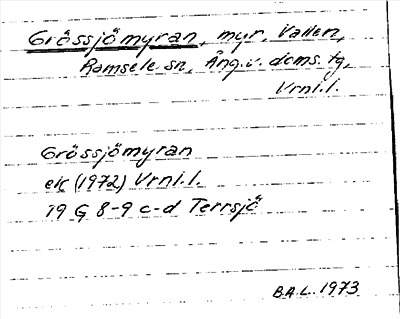 Grössjömyran, myr, Vallen,
Ramsele sn, Ång.v. doms. tg,
Vrnl.l.
Grössjömyran
ek (1972) Vrnl.l.
19 G 8-9 c-d Terrsjö
B.A.L. 1973